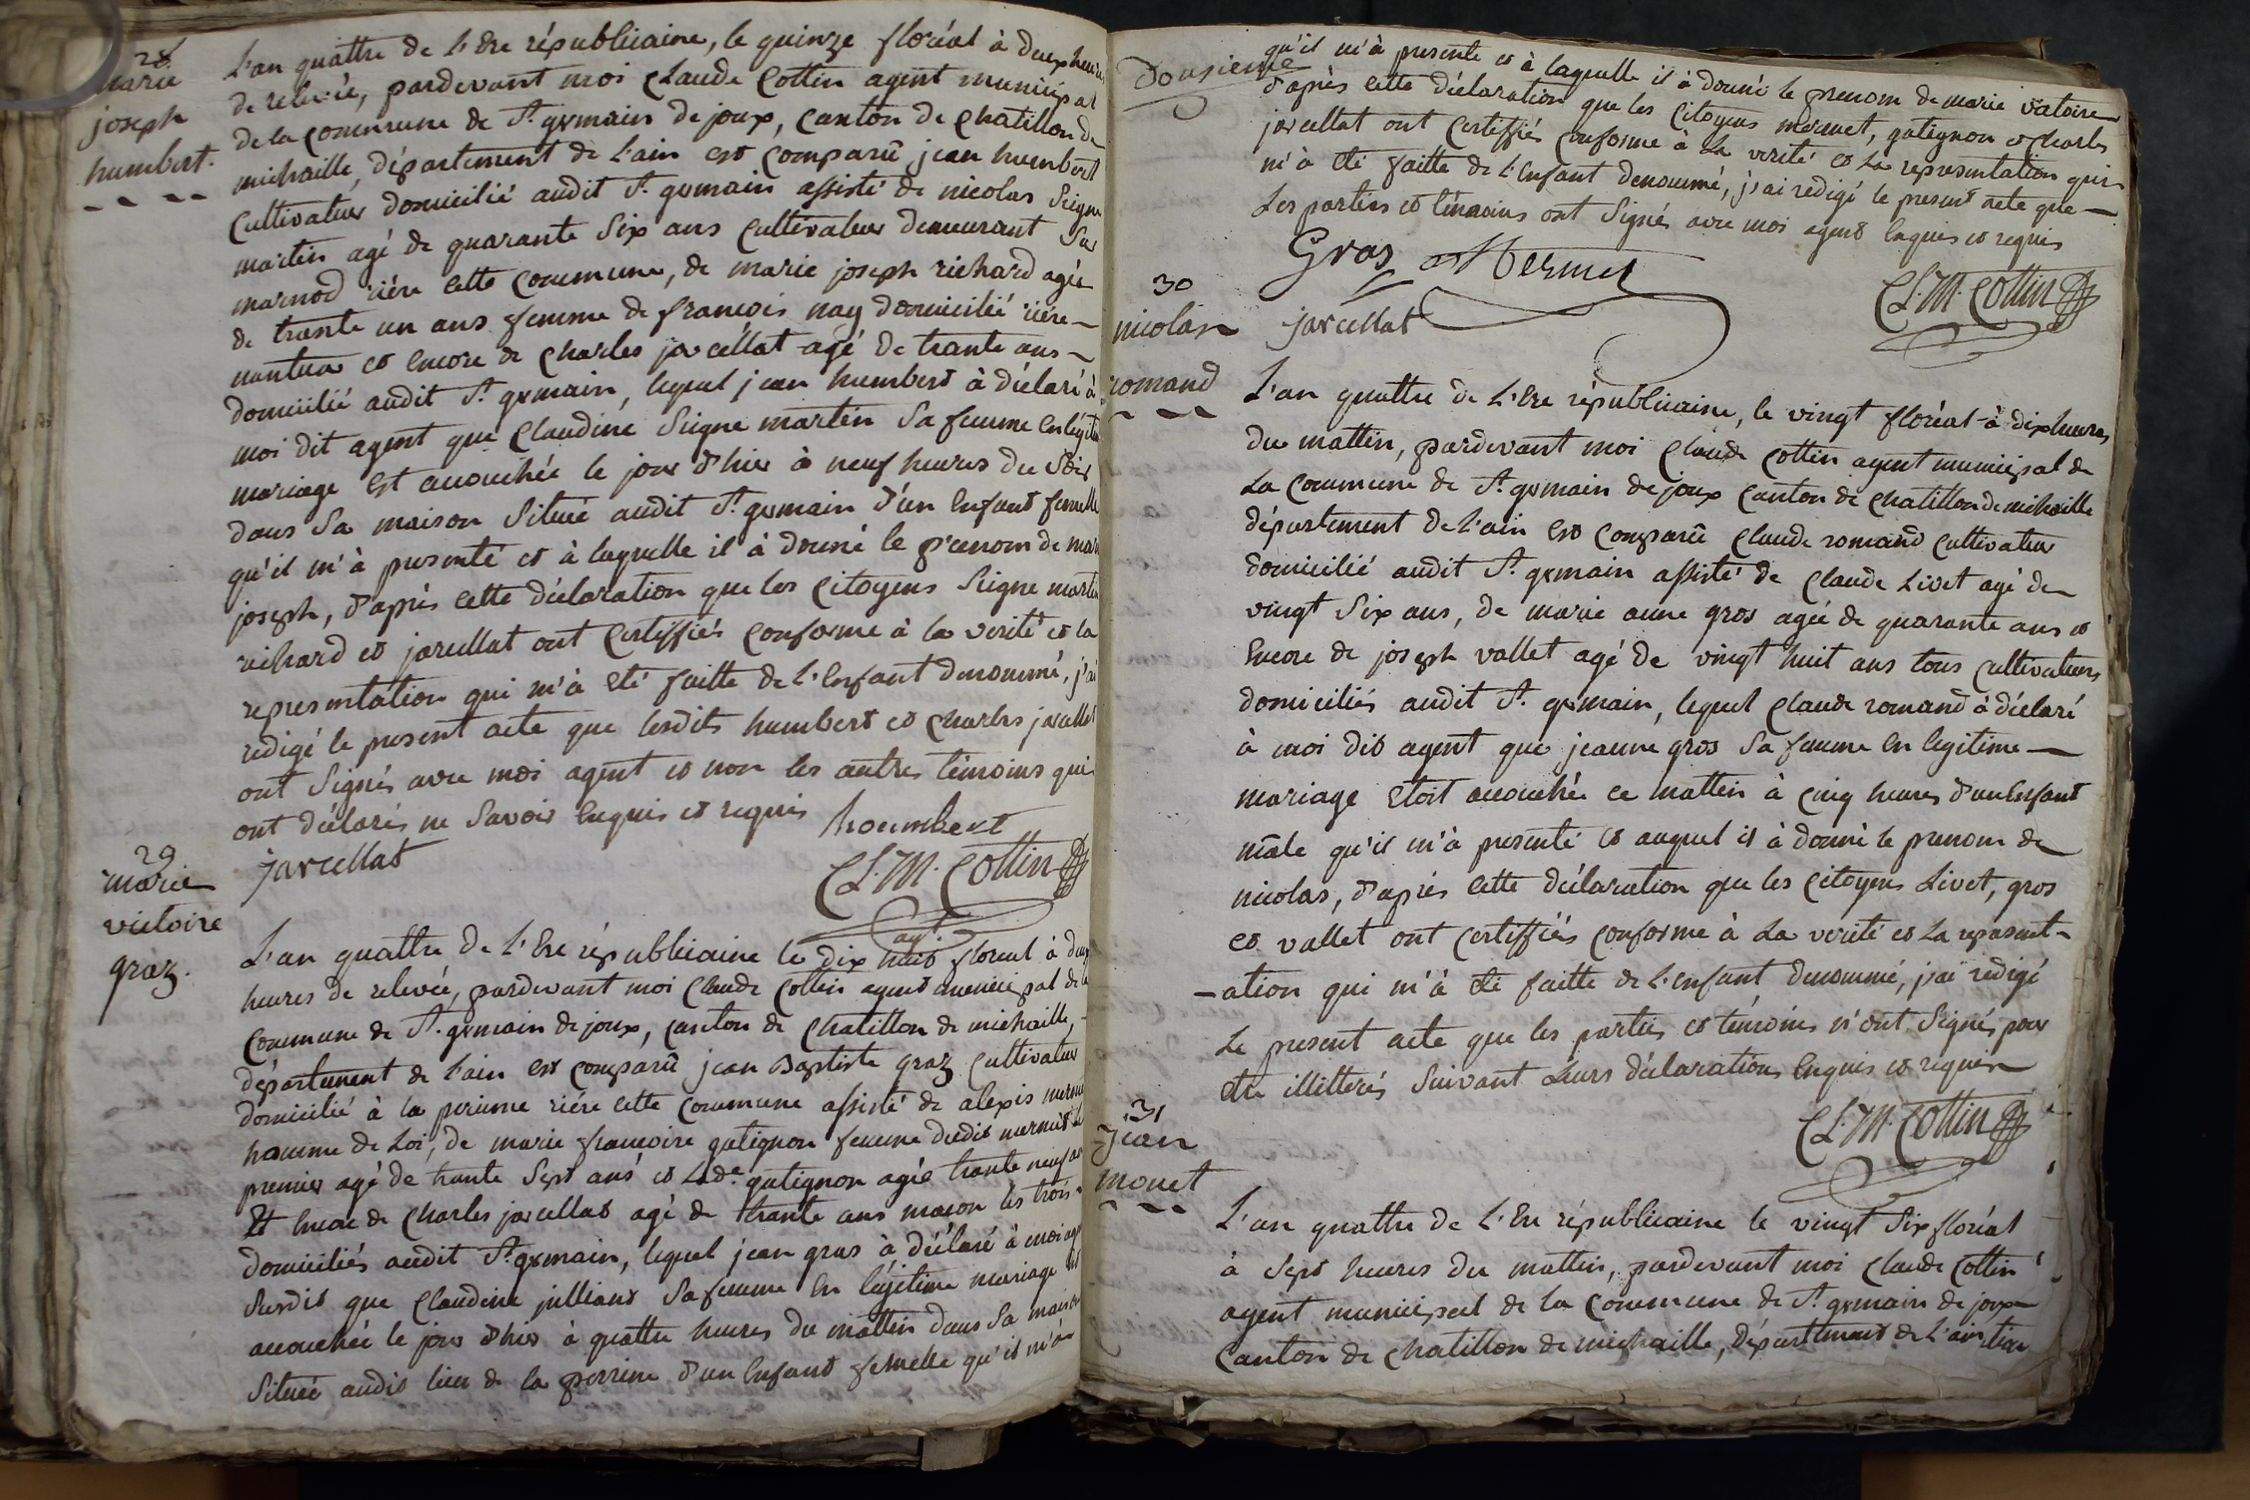 28
marie
joseph
humbert.
L'an quattre de L'Ere républicaine, le quinze floréal à deux heures
de relevée, pardevant moi Claude Cottin agent municipal
de la commune de St. germain de joux, canton de chatillon de
michaille, département de L'ain est comparû jean humbert
Cultivateur domicilié audit St. germain assisté de nicolas Seigne
martin agé de quarante Six ans Cultivateur demeurant Sur
marnod riére cette commune, de marie joseph richard agée
de trante un ans femme de francois nay domicilié riére
nantua et encore de Charles jarcellat agé de trante ans
domicilié audit St. germain, lequel jean humbert à déclaré à
moi dit agent que Claudine Seigne martin Sa femme en légitime
mariage Est accouchée le jour d'hier à neuf heures du Soir
dans Sa maison Située audit St. germain d'un Enfant femelle
qu'il m'à presenté et à laquelle il à donné le prenom de marie
joseph, d'après cette déclaration que les Citoyens Seigne martin
richard et jarcellat ont Certiffiés conforme à la verité et la
representation qui m'à été faitte de L'Enfant denommé, j'ai
redigé le present acte que lesdits humbert et Charles jarcellat
ont Signés avec moi agent et non les autres témoins qui
ont déclarés ne Savoir Enquis et requis
houmbert
jarcellat
CL.M. Cottin
agt.
29
marie
victoire
graz.
L'an quattre de L'Ere républicaine le dix huit floreal à deux
heures de relevée, pardevant moi Claude Cottin agent municipal de la
Commune de St. germain de joux, canton de Chatillon de michaille,
département de L'ain est comparû jean Baptiste graz Cultivateur
domicilié à la perrinne riére cette Commune assisté de alexis mermet
homme de Loi, de marie francoise gutignon femme dudit mermet le
premier agé de trante Sept ans et Lade. gutignon agée trante neuf ans
Et Encore de Charles jarcellat agé de trante ans macon les trois
domiciliés audit St. germain, lequel jean gras à déclaré à moi agent
Susdit que Claudine julliand Sa femme En légitime mariage Est
accouchée le jour d'hier à quattre heures du mattin dans Sa maison
Située audit lieu de la perrine d'un Enfant femelle qu'il m'à
Dousieme
qu'il m'à presenté et à laquelle il à donné le prenom de marie victoire
d'après cette déclaration que les Citoyens mermet, gutignon et charles
jarcellat ont Certiffiés Conforme à La verité et La representation qui
m'à été faitte de L'Enfant denommé, j'ai redigé le present acte que
Les parties et témoins ont Signés avec moi agent Enquis et requis
Gras Mermet
jarcellat
CL.M. Cottin
30
nicolas
romand
L'an quattre de L'Ere républicaine, le vingt floréal à dix heures
du mattin, pardevant moi Claude Cottin agent municipal de
La Commune de St. germain de joux Canton de Chatillon de michaille
département de L'ain Est comparû Claude romand Cultivateur
domicilié audit St. germain assisté de Claude Livet agé de
vingt Six ans, de marie anne gros agée de quarante ans et
Encore de joseph vallet agé de vingt huit ans tous Cultivateurs
domiciliés audit St. germain, lequel Claude romand à déclaré
à moi dit agent que jeanne gros Sa femme En legitime
mariage Etoit accouchée ce mattin à Cinq heures d'un Enfant
mâle qu'il m'à presenté et auquel il à donné le prenom de
nicolas, d'après Cette déclaration que les Citoyens Livet, gros
et vallet ont Certiffiés conforme à La verité et La represent-
-ation qui m'à été faitte de L'enfant denommé, j'ai redigé
Le present acte que les parties et témoins n'ont Signés pour
être illitterés Suivant Leurs déclarations Enquis et requis
CL.M. Cottin
31
jean
monet
L'an quattre de L'Ere républicaine le vingt Six floréal
à Sept heures du mattin, pardevant moi Claude Cottin
agent municipal de la Commune de St. germain de joux
Canton de Chatillon de michaille, département de L'ain